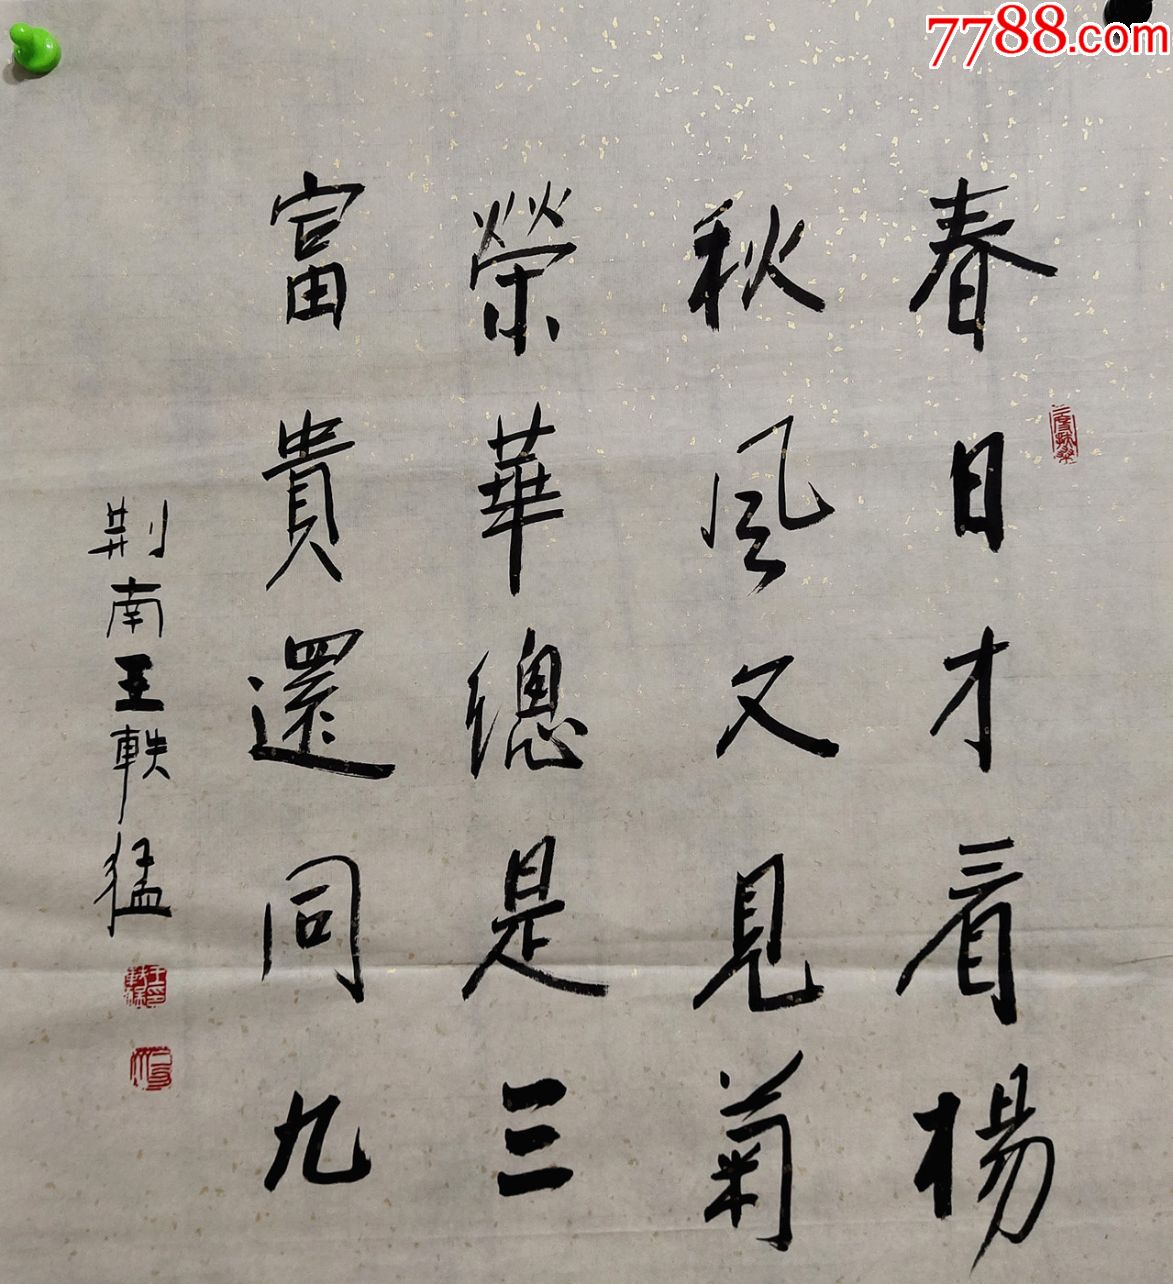 7788.com
春日才看楊
秋風又見菊
榮華總是三
富貴還同九
荆南王軼猛